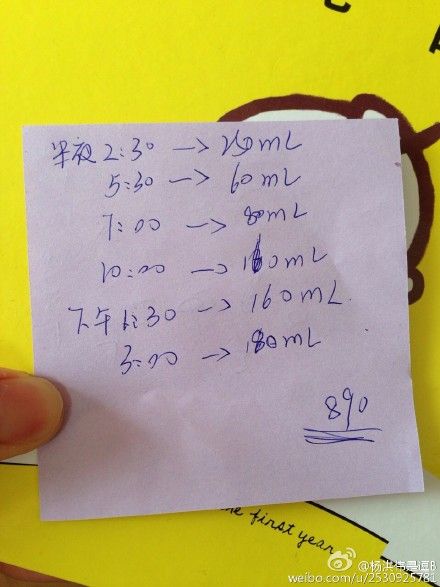 半夜2:30 —> 250mL
5:30 —> 60mL
7:00 —> 80mL
10:00 —> 160mL
下午1:30 —> 160mL
3:00 —> 180mL
890
the first year
@杨洪伟是逗B
weibo.com/u/2530925781